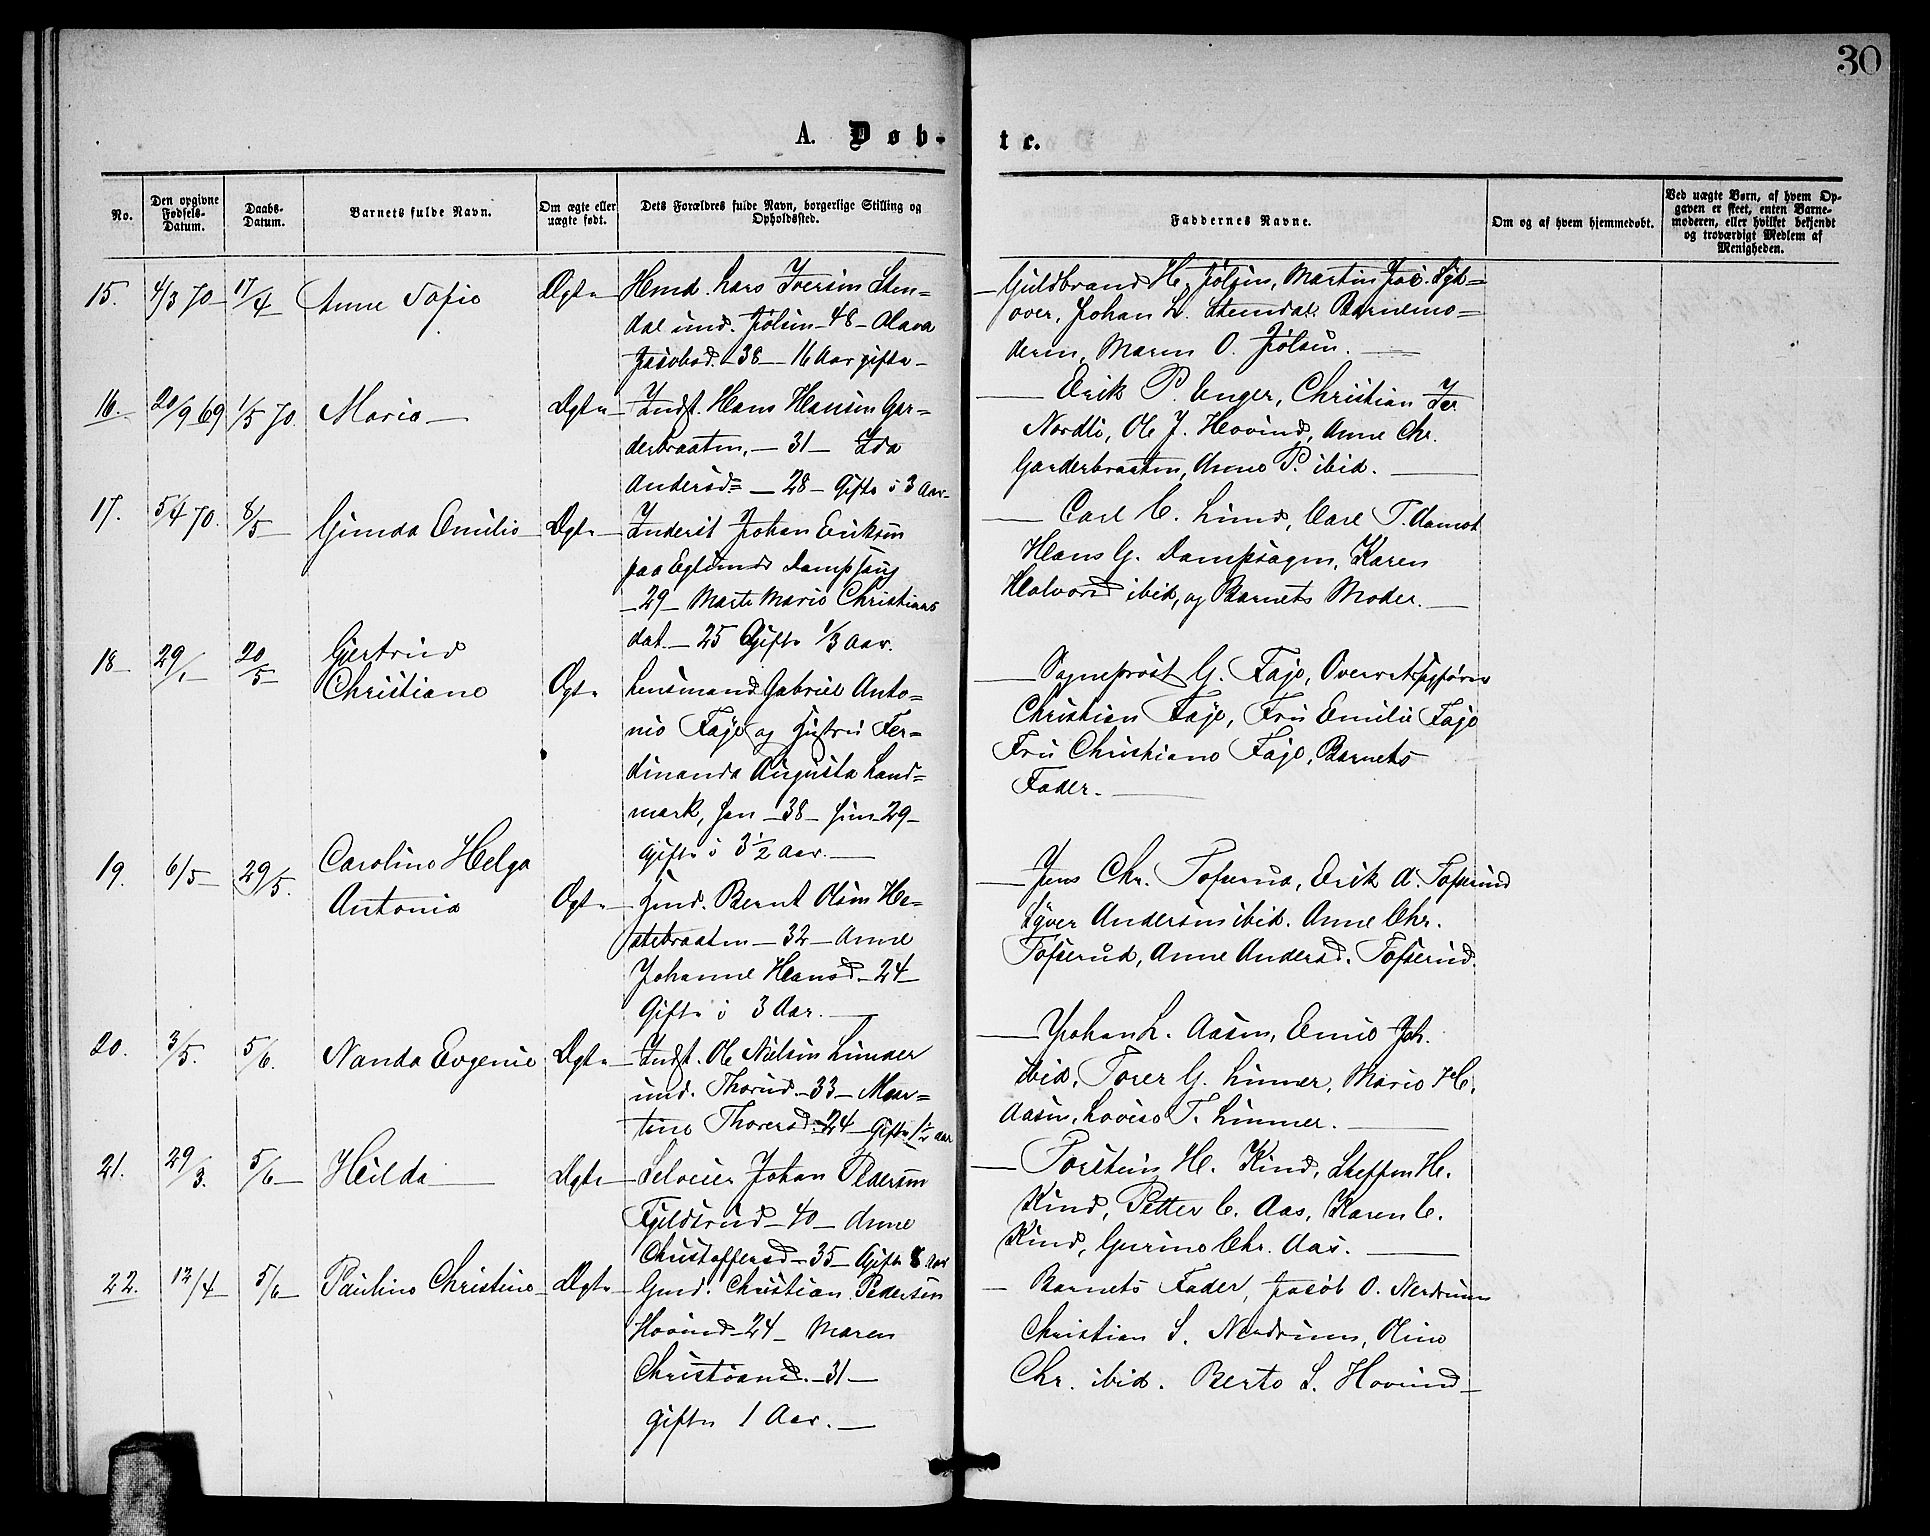 30
A. Døb-
te.
No.
Den opgivne Fødsels-Datum.
Daabs-Datum.
Barnets fulde Navn.
Om ægte eller uægte født.
Dets Forældres fulde Navn, borgerlige Stilling og Opholdssted.
Faddernes Navne.
Om og af hvem hjemmedøbt.
Ved uægte Børn, af hvem Op-
gaven er skeet, enten Barne-
moderen, eller hvilket bekjendt
og troværdigt Medlem af
Menigheden.
15. 4/3 70 17/4 Anne Sofie Ægte
Hmd. Lars Iversen Sten=
dal und. Jølsen - 48 - Olava
Jacobsd. - 38 - 16 Aar gifte -
Guldbrand H. Jølsen, Martin Jac.
over, Johan L. Stendal Barnemo=
deren, Maren O. Jølsen.
16. 20/9 69 1/5 70. Maria Ægte
Indst. Hans Hansen Gar=
derbraaten, - 31 - Ida
Andersd= - 28 - Gifte i 3 Aar -
Erik P. Enger, Christian
Nordli, Ole J. Hovind, Anne Chr.
Garderbraaten, Anne P. ibid.
17. 5/4 70. 8/5 Gunda Emilie Ægte
Inderst Johan Eriksen
paa Eglunds Dampsaug
- 29 - Marte Marie Christians
dat. - 25 Gifte 1/3 Aar.
Carl C. Lund, Carl T. Aamot
Hans G. Dampsagen, Karen
Halvorsd ibid, og Barnets Moder.
18 29/1 20/5 Gertrud
Christiane Ægte
Lensmand Gabriel Anto=
nio Faye og Hustru Fer=
dinanda Augusta Land=
mark, han - 38 - hun 29 -
Gifte i 3 1/2 Aar.
Sogneprest G. Faye, Overretssagfører
Christian Faye, Fru Emilie Faye
Fru Christiane Faye, Barnets
Fader.
19. 6/5 29/5. Caroline Helga
Antonia Ægte
Hmd. Bernt Olsen He=
stebraaten - 32 - Anne
Johanne Hansd - 24 -
Gifte i 3 Aar.
Jens Chr. Tofserud, Erik A. Tofserud
Syver Andersen ibid. Anne Chr.
Tofserud, Anne Andersd. Tofserud.
20. 3/5. 5/6. Nanda Evgenie Ægte
Indst. Ole Nielsen Linner
und. Thorud - 33 - Mar=
tine Thorersd - 24 - Gifte 1 1/2 Aar
Johan L. Aasen, Emie Joh.
ibid, Torer G. Linner, Marie H.
Aasen, Lovise T. Linner.
21. 29/3. 5/6 Hilda Ægte
Selveier Johan Pedersen
Fjeldsrud - 40 - Anne
Christoffersd - 35 - Gifte 8 Aar
Torstein H. Kind, Steffen H.
Kind, Petter C. Aas, Karen C.
Kind, Gurine Chr. Aas.
22. 12/4 5/6 Pauline Christine Ægte
Gmd. Christian Pedersen
Hovind - 24 - Maren
Christiansd. - 31 -
gifte 1 Aar.
Barnets Fader, Jacob O. Nerdrum
Christian S. Nerdrum, Oline
Chr. ibid. Berte S. Hovind